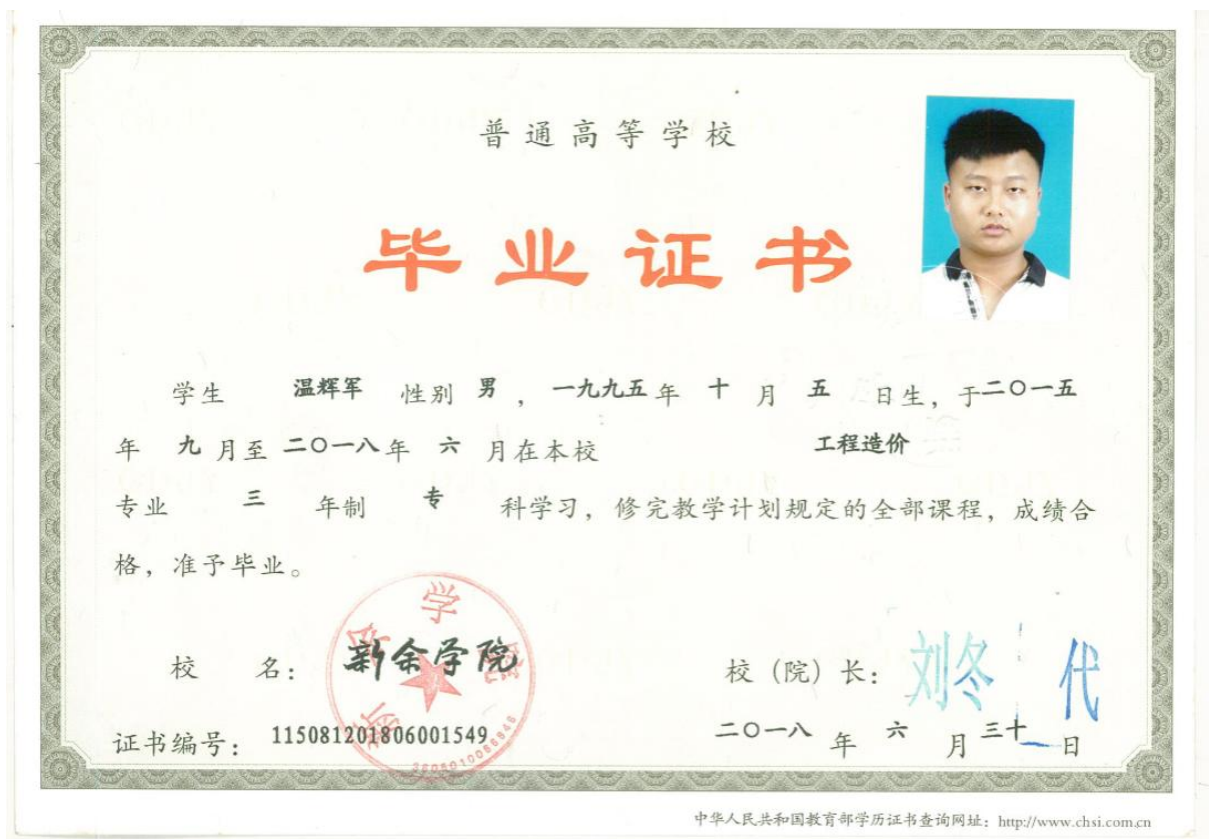 普通高等学校
毕业证书
学生 温辉军 性别 男 ，一九九五年 十 月 五 日生，于二〇一五
年 九 月至 二〇一八年 六 月在本校 工程造价
专业 三 年制 专 科学习，修完教学计划规定的全部课程，成绩合
格，准予毕业。
校 名： 新余学院 校（院）长： 刘冬 代
证书编号： 115081201806001549 二〇一八 年 六 月 三十 日
新余学院
中华人民共和国教育部学历证书查询网址：http://www.chsi.com.cn